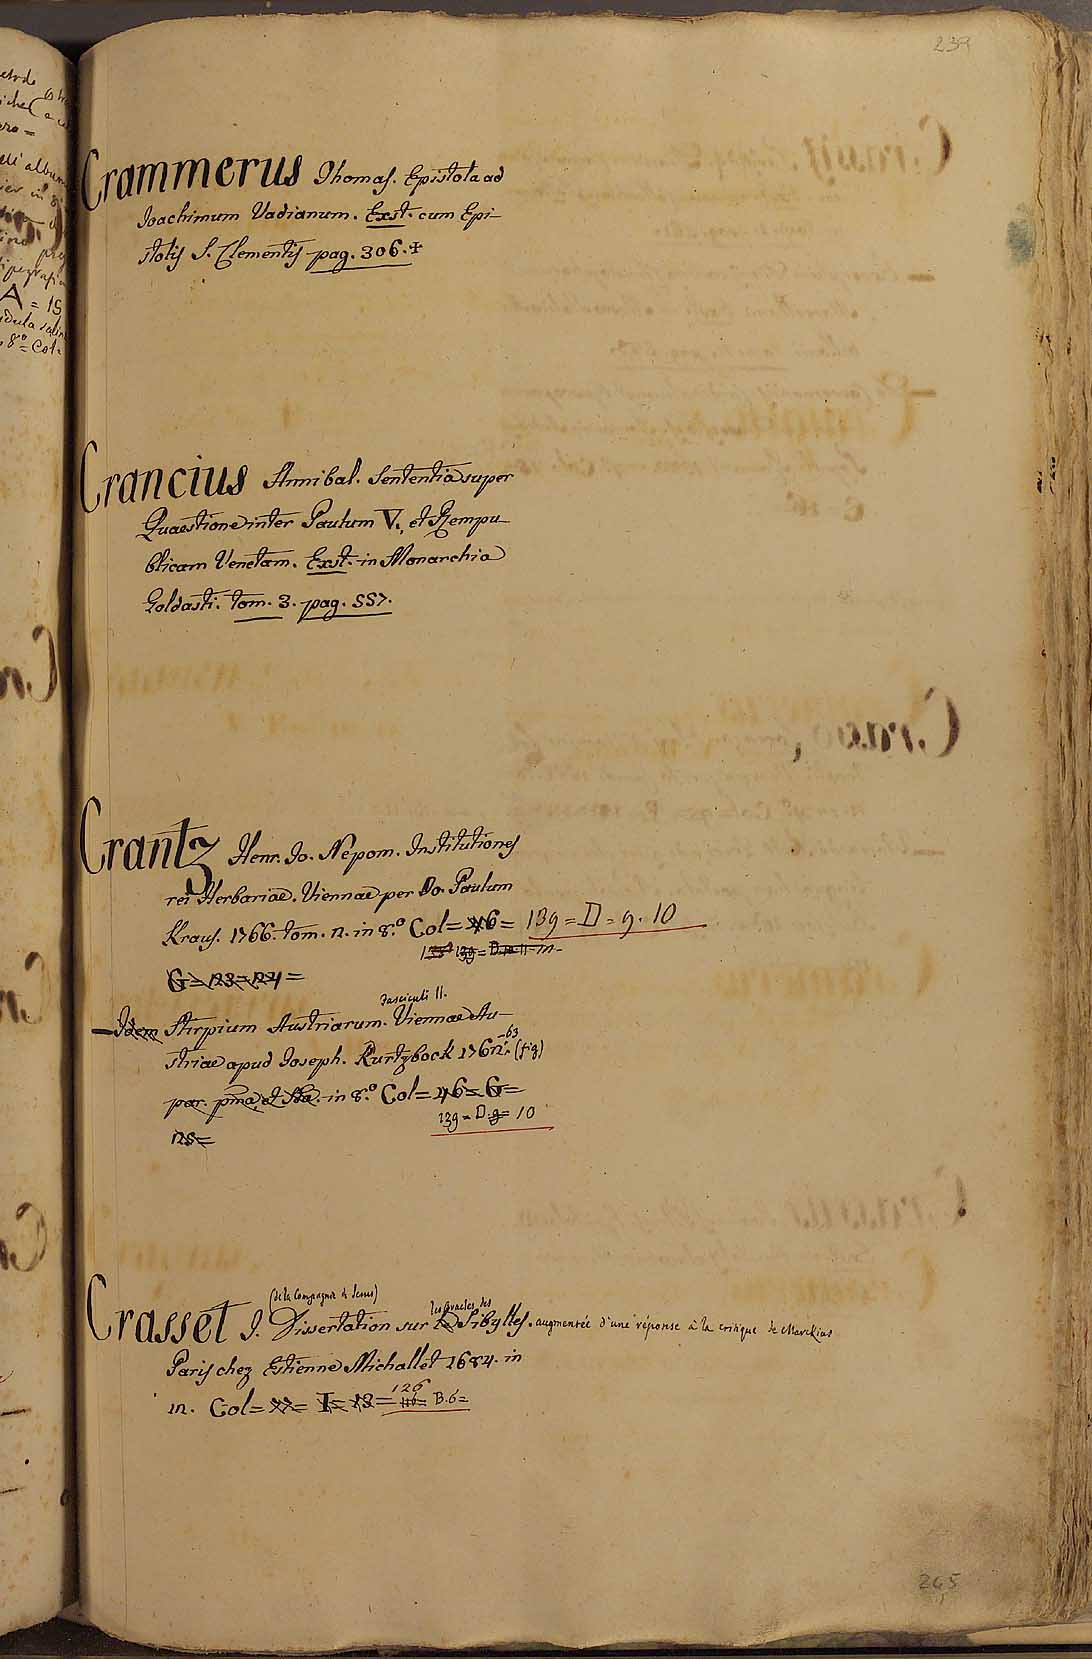 239
Crammerus Thomas. Epistola ad
Joachimum Vadianum. Exst. cum Epi-
stolis S. Clementis pag. 306. +
Crancius Annibal. Sententia super
Quaestione inter Paulum V. et Rempu-
blicam Venetam. Exst. in Monarchia
Goldasti. tom. 3. pag. 557.
Crantz Henr. Jo. Nepom. Institutiones
rei Herbariae. Viennae per Jo. Paulum
Kraus. 1766. tom. 2. in 8.º Col= 46= 139=D=9. 10
139=
G=123=124=
— Idem Stirpium Austriarum. Fasciculi II. Viennae Au-
striae apud Joseph. Kurtzbock 1762.-63 (fig)
par. pma, et 2da. in 8.º Col=46=G=
139=D.9= 10
125=
Crasset J. (de la Compagnie de Jesus) Dissertation sur les Oracles des Sibylles. augmentée d'une réponse à la critique de Marckius
Paris chez Estienne Michallet 1684. in
12. Col=77=I=13= 126 B.6=
265